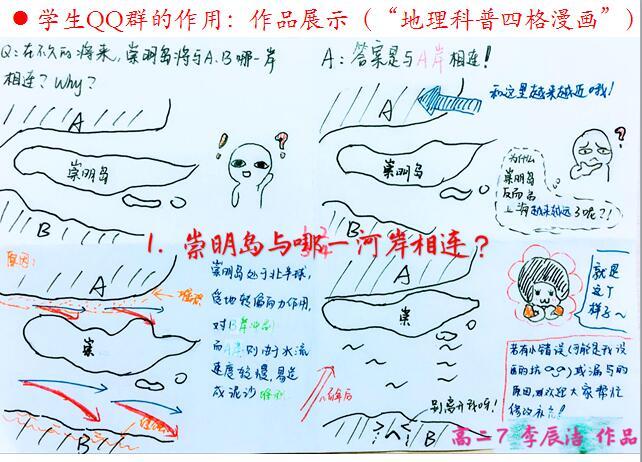 ● 学生QQ群的作用：作品展示（“地理科普四格漫画”）
Q:在不久的将来,崇明岛将与A.B哪一岸
相连？Why？
A
崇明岛
B
A：答案是与A岸相连！
A
和这里越来越近哦!
崇明岛
B
为什么
崇明岛
反而离
上海越来越远
了呢?!
1. 崇明岛与哪一河岸相连？
原因:
A
堆积
崇
B
崇明岛处于北半球,
受地转偏向力作用,
对B岸冲刷
而A岸则由于水流
速度较慢,易造
成泥沙堆积
A
崇
N年后
别离开我呀!
B
就是
这个
样子~
若有小错误(可能是我没
画的坑)或漏写的
原因,欢迎大家帮忙
修改补充!
高二7 李辰洁 作品